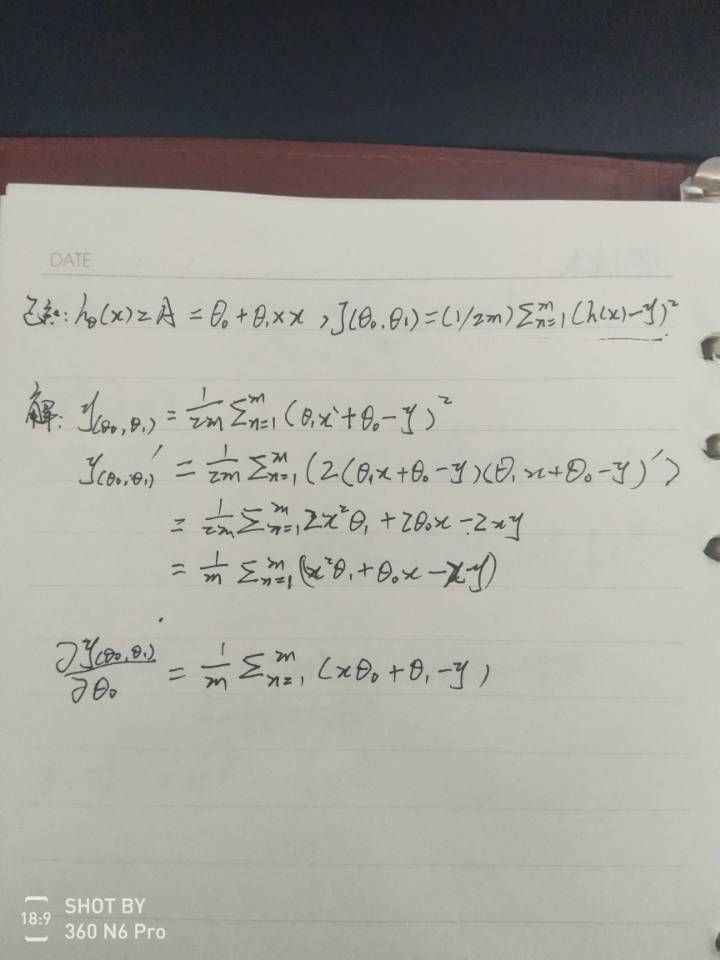 DATE
已知: hθ(x) = A = θ₀ + θ₁×x , J(θ₀,θ₁) = (1/2m) Σⁿ₌₁ᵐ (h(x)-y)²
解: y(θ₀,θ₁) = 1/2m Σₙ₌₁ᵐ (θ₁x + θ₀ - y)²
y(θ₀,θ₁)′ = 1/2m Σₙ₌₁ᵐ (2(θ₁x + θ₀ - y)(θ₁x + θ₀ - y)′)
= 1/2m Σₙ₌₁ᵐ 2x²θ₁ + 2θ₀x - 2xy
= 1/m Σₙ₌₁ᵐ (x²θ₁ + θ₀x - xy)
∂y(θ₀,θ₁)/∂θ₀ = 1/m Σₙ₌₁ᵐ (xθ₀ + θ₁ - y)
18:9
SHOT BY
360 N6 Pro